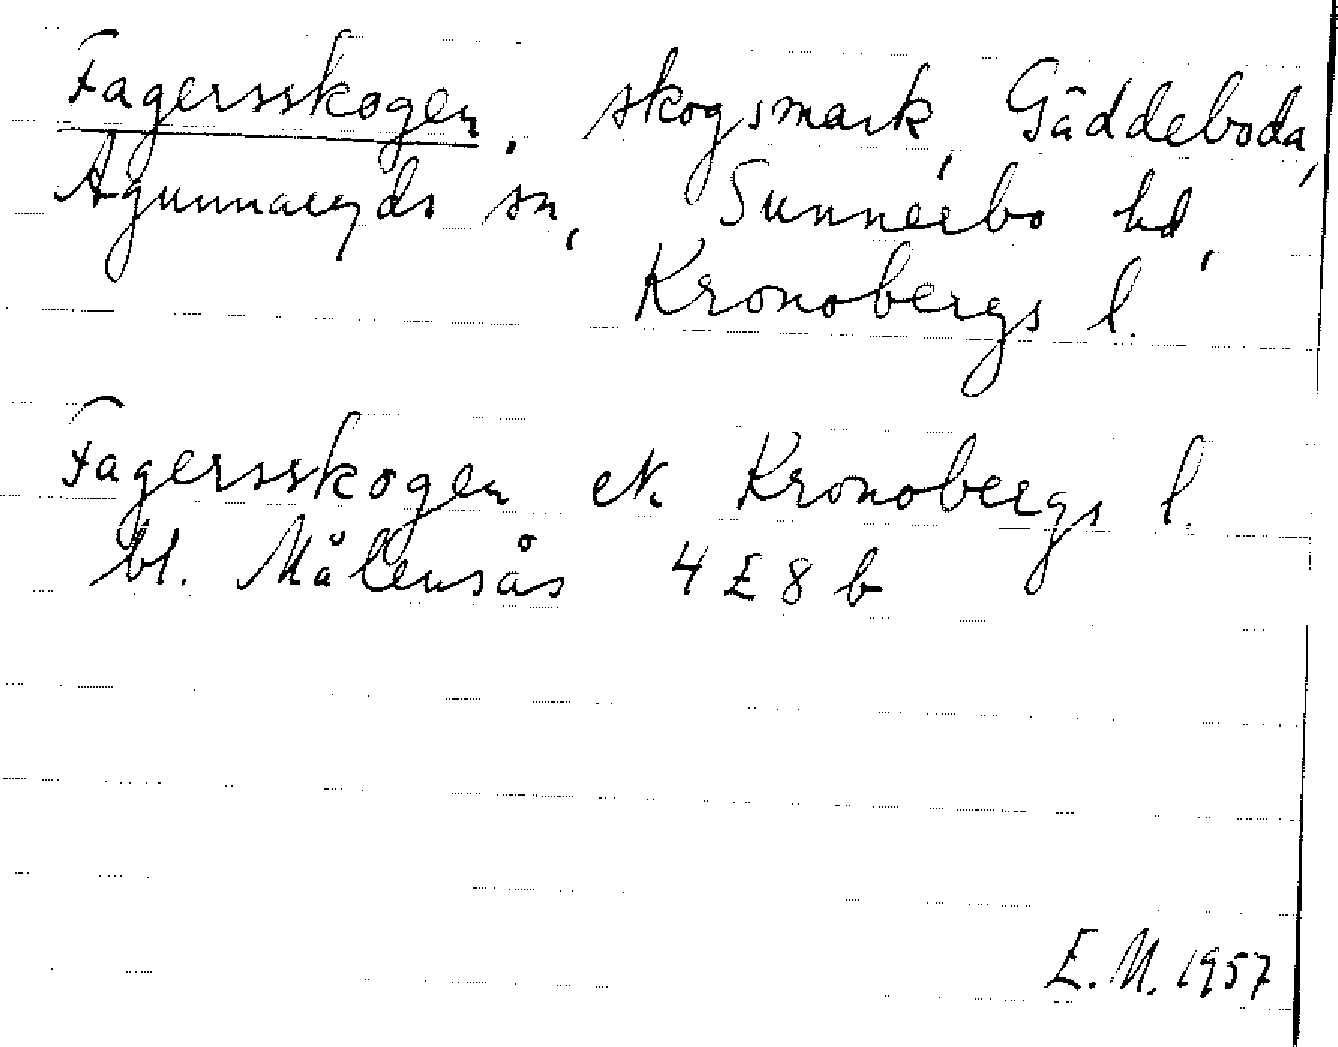 Fagersskogen, skogsmark, Gäddeboda,
Agunnaryds sn, Sunnerbo hd,
Kronobergs l.
Fagersskogen ek. Kronobergs l.
bl. Målensås 4 E 8 b
E.M. 1957